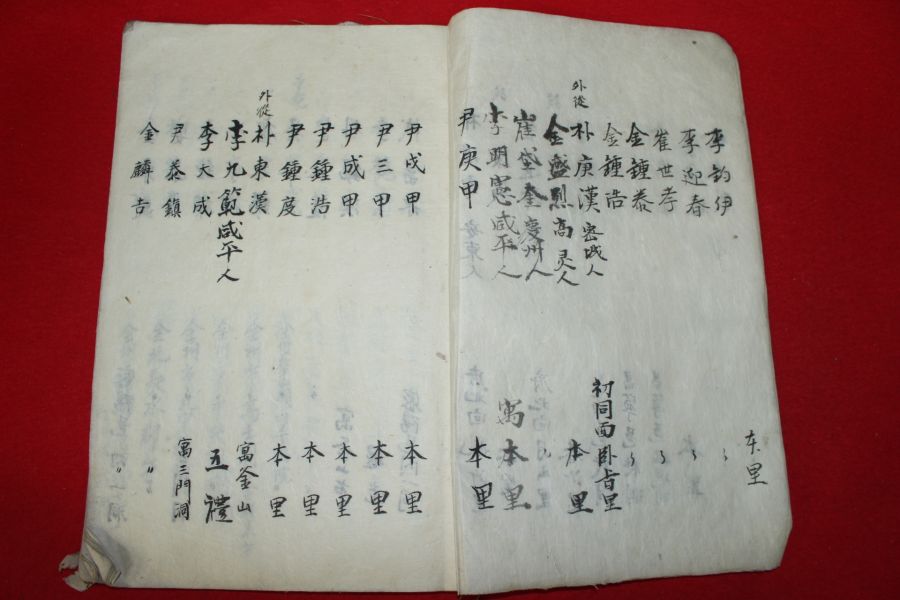 李鈞伊 本里
李迎春 〃
崔世孝 〃
金鍾泰 〃
金鍾浩 初同面臥旨里
外從 朴庚漢 密城人 本里
金盛烈 高灵人 〃
崔岱奎 慶州人 寓本里
李明憲 咸平人 本里
尹庚甲
尹戊甲 本里
尹三甲 本里
尹成甲 本里
尹鍾浩 本里
尹鍾度 本里
外從 朴東漢 寓釜山
李九範 咸平人 五禮
李大成 寓三門洞
尹泰鎮 〃
金麟吉 〃